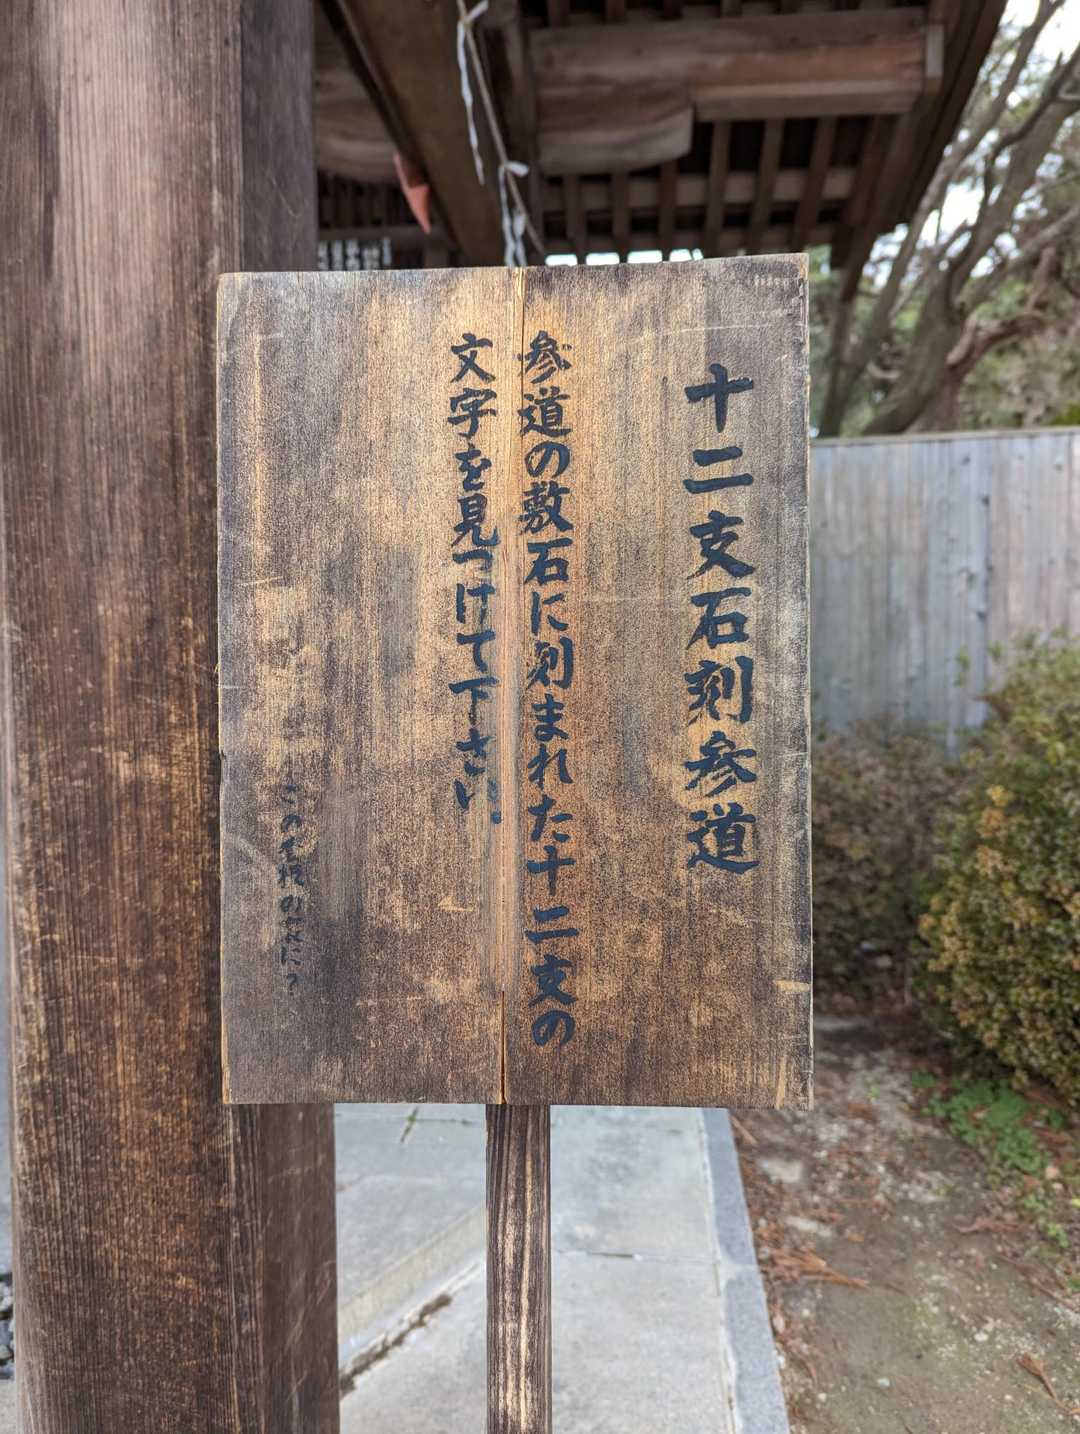 十二支石刻参道
参道の敷石に刻まれた十二支の
文字を見つけて下さい。
この
に?